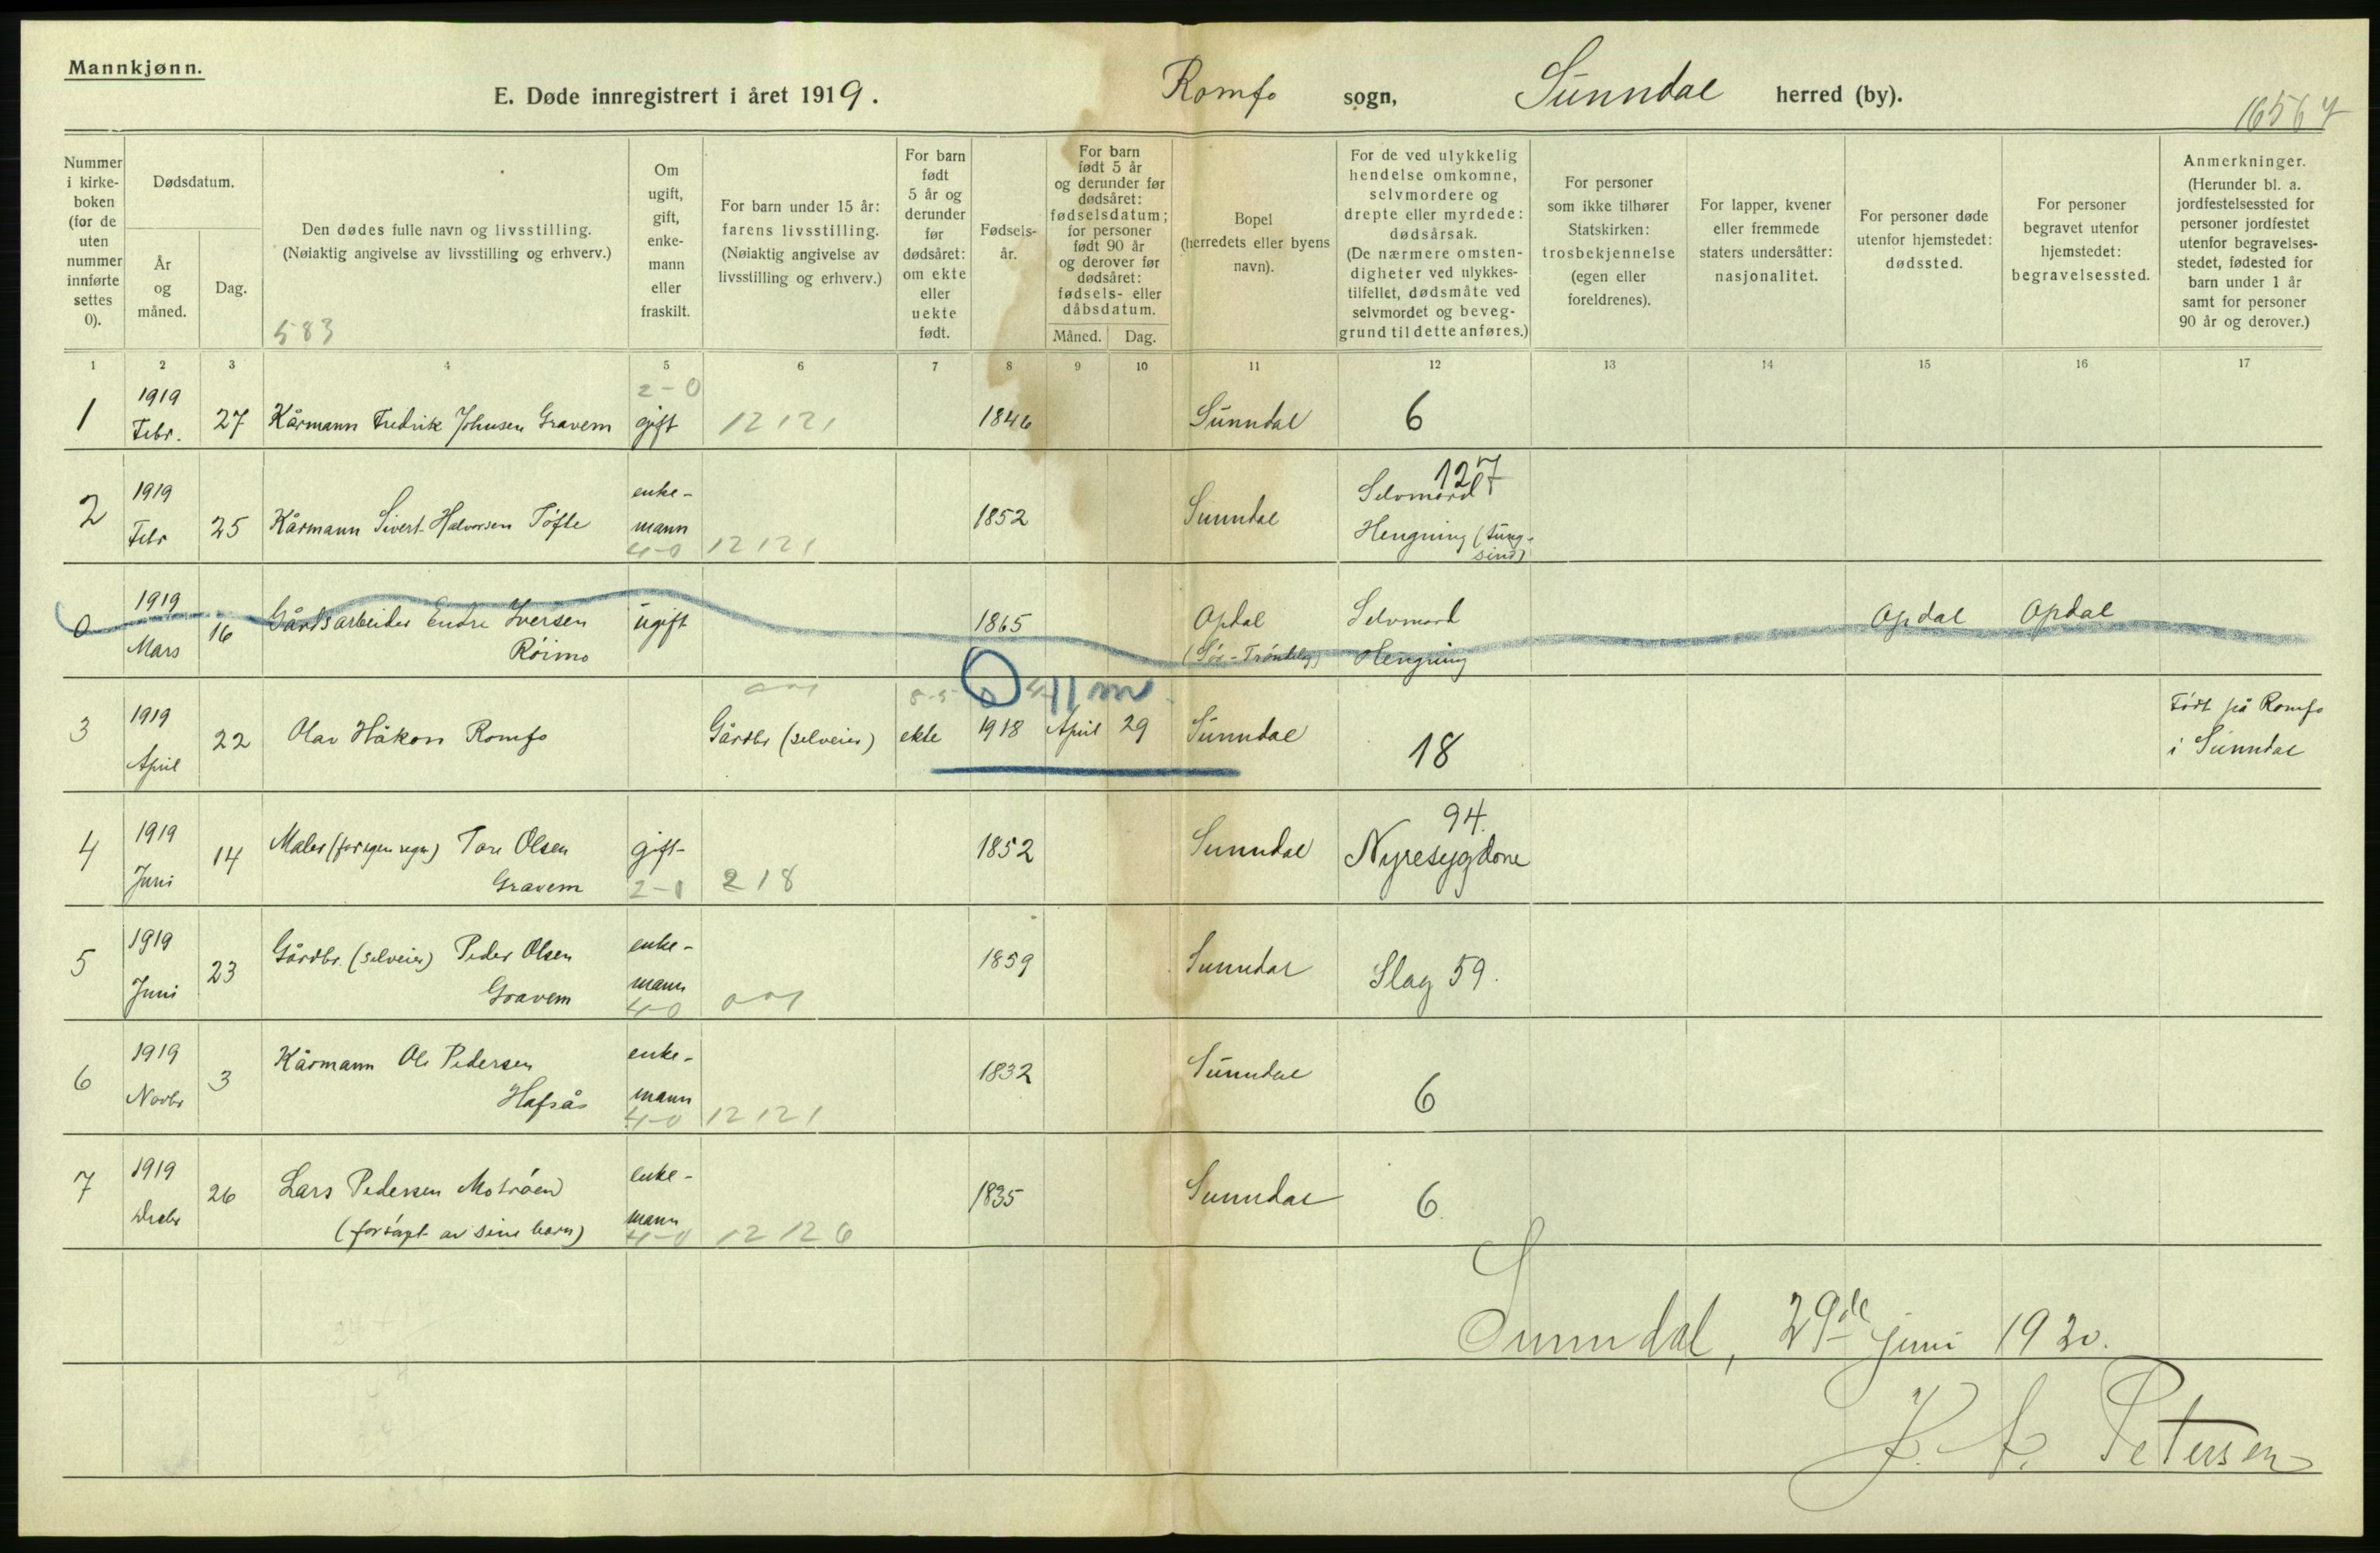 Mannkjønn.
E. Døde innregistrert i året 1919. Romfo sogn, Sunndal herred (by).
16567
Nummer i kirke- boken (for de uten nummer innførte settes 0).
Dødsdatum.
År og måned.
Dag.
Den dødes fulle navn og livsstilling.
(Nøiaktig angivelse av livsstilling og erhverv.)
583
Om ugift, gift, enke- mann eller fraskilt.
For barn under 15 år: farens livsstilling. (Nøiaktig angivelse av livsstilling og erhverv.)
For barn født 5 år og derunder før dødsåret: om ekte eller uekte født.
Fødsels- år.
For barn født 5 år og derunder før dødsåret: fødselsdatum; for personer født 90 år og derover før dødsåret: fødsels- eller dåbsdatum.
Måned. Dag.
Bopel (herredets eller byens navn).
For de ved ulykkelig hendelse omkomne, selvmordere og drepte eller myrdede: dødsårsak. (De nærmere omsten- digheter ved ulykkes- tilfellet, dødsmåte ved selvmordet og beveg- grund til dette anføres.)
For personer som ikke tilhører Statskirken: trosbekjennelse (egen eller foreldrenes).
For lapper, kvener eller fremmede staters undersåtter: nasjonalitet.
For personer døde utenfor hjemstedet: dødssted.
For personer begravet utenfor hjemstedet: begravelsessted.
Anmerkninger. (Herunder bl. a. jordfestelsessted for personer jordfestet utenfor begravelses- stedet, fødested for barn under 1 år samt for personer 90 år og derover.)
1 2 3 4 5 6 7 8 9 10 11 12 13 14 15 16 17
1 1919 Febr. 27 Kårmann Fredrik Johnsen Gravem 2-0 gift 12121 1846 Sunndal 6
2 1919 Febr 25 Kårmann Sivert Halvorsen Tøfte enke- mann 4-0 12121 1852 Sunndal 127 Selvmord
Hengning (tung- sind)
0 1919 Mars 16 Gårdsarbeider Endre Iversen ugift 1865 Opdal Selvmord Opdal Opdal
Røimo (Sør-Trøndelag) Hengning
11 m
3 1919 April 22 Olav Håkon Romfo Gårdbr (selveier) ekte 1918 April 29 Sunndal 18 Født på Romfo
i Sunndal
4 1919 Juni 14 Maler (for egen regn) Tore Olsen gift 1852 Sunndal 94.
Gravem 2-0 218 Nyresygdom
5 1919 Juni 23 Gårdbr. (selveier) Peder Olsen enke- 1859 Sunndal Slag 59.
Gravem mann 4-0
6 1919 Novbr 3 Kårmann Ole Pedersen enke- 1832 Sunndal 6
Hafsås mann 4-0 12121
7 1919 Decbr 26 Lars Pedersen Motrøen enke- 1835 Sunndal 6.
(forsørget av sine barn) mann 4-0 12126
Sunndal, 29de juni 1920.
Petersen